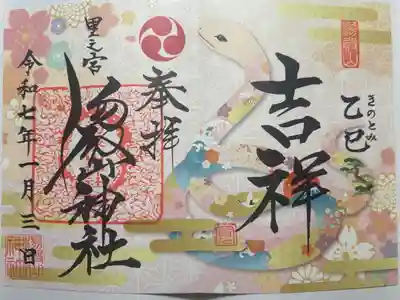 きのとみ
乙巳
吉祥
奉拝
里之宮
湯殿山神社
令和七年一月三日